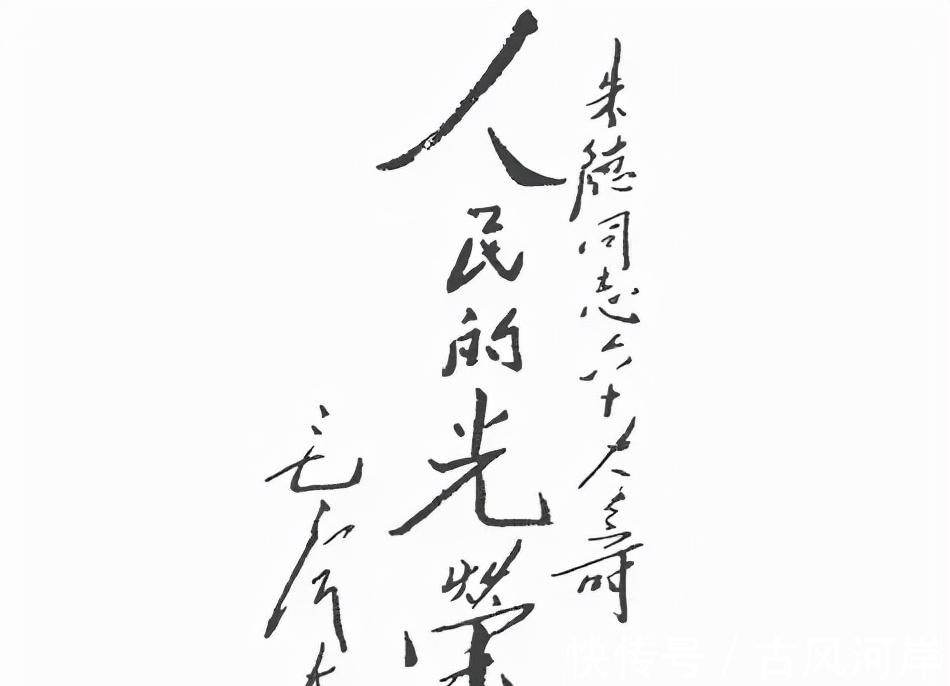 朱德同志六十大寿
人民的光荣
毛泽东
快传号 / 古风河岸